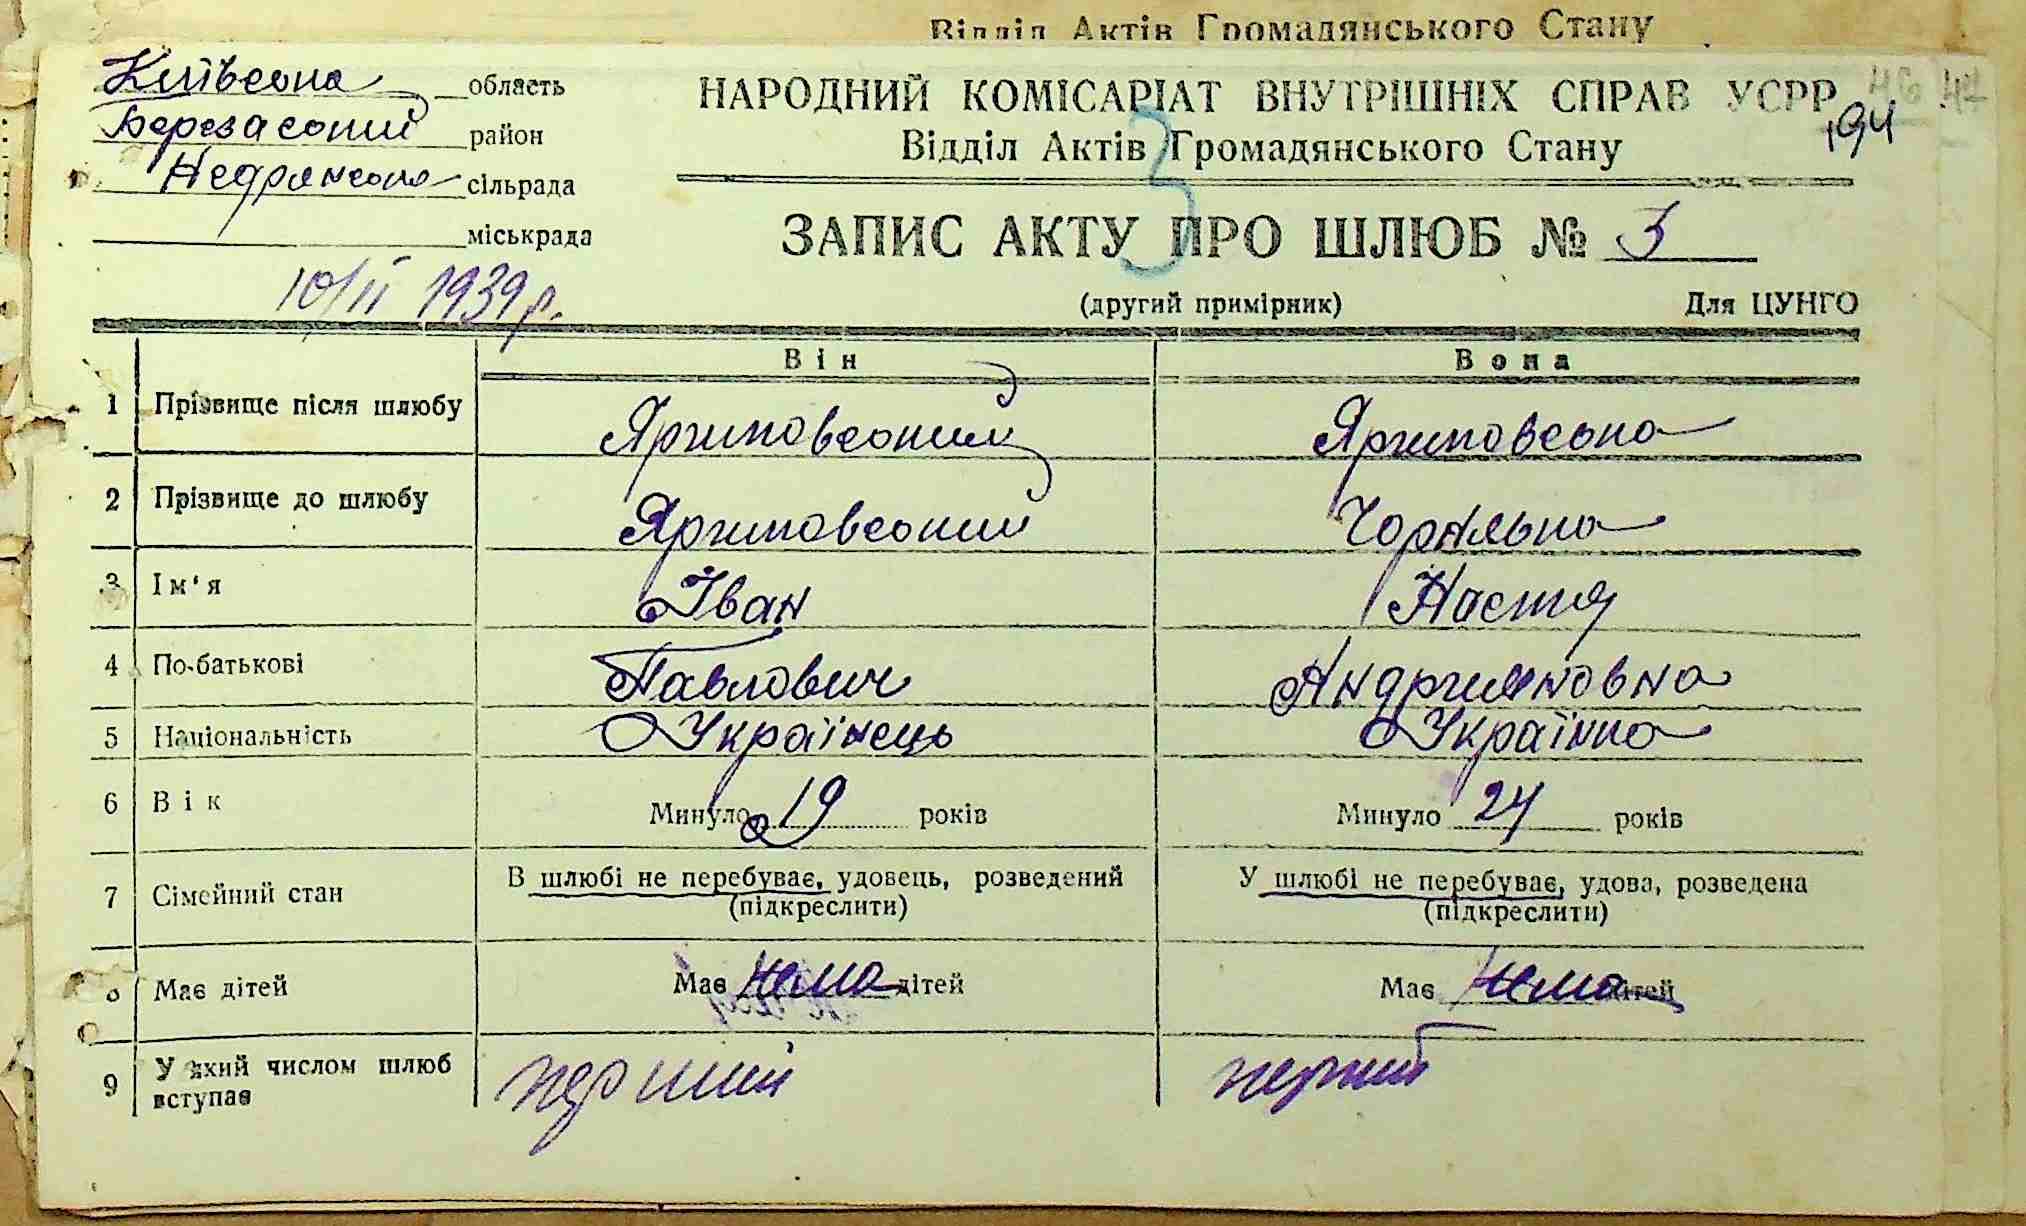 Відділ Актів Громадянського Стану
Київська область
Березанський район
Недринська сільрада
міськрада
10/II 1939 р.
НАРОДНИЙ КОМІСАРІАТ ВНУТРІШНІХ СПРАВ УСРР
46 47
194
Відділ Актів Громадянського Стану
3
ЗАПИС АКТУ ПРО ШЛЮБ № 3
(другий примірник) Для ЦУНГО
Він Вона
1 Прізвище після шлюбу
2 Прізвище до шлюбу
3 Ім'я Іван Настя
4 По-батькові Павлович Андрияновна
5 Національність Українець Українка
6 Вік Минуло 19 років Минуло 24 років
7 Сімейний стан В шлюбі не перебуває, удовець, розведений У шлюбі не перебуває, удова, розведена
(підкреслити) (підкреслити)
8 Має дітей Має нема дітей Має нема дітей
9 У який числом шлюб вступає перший перший